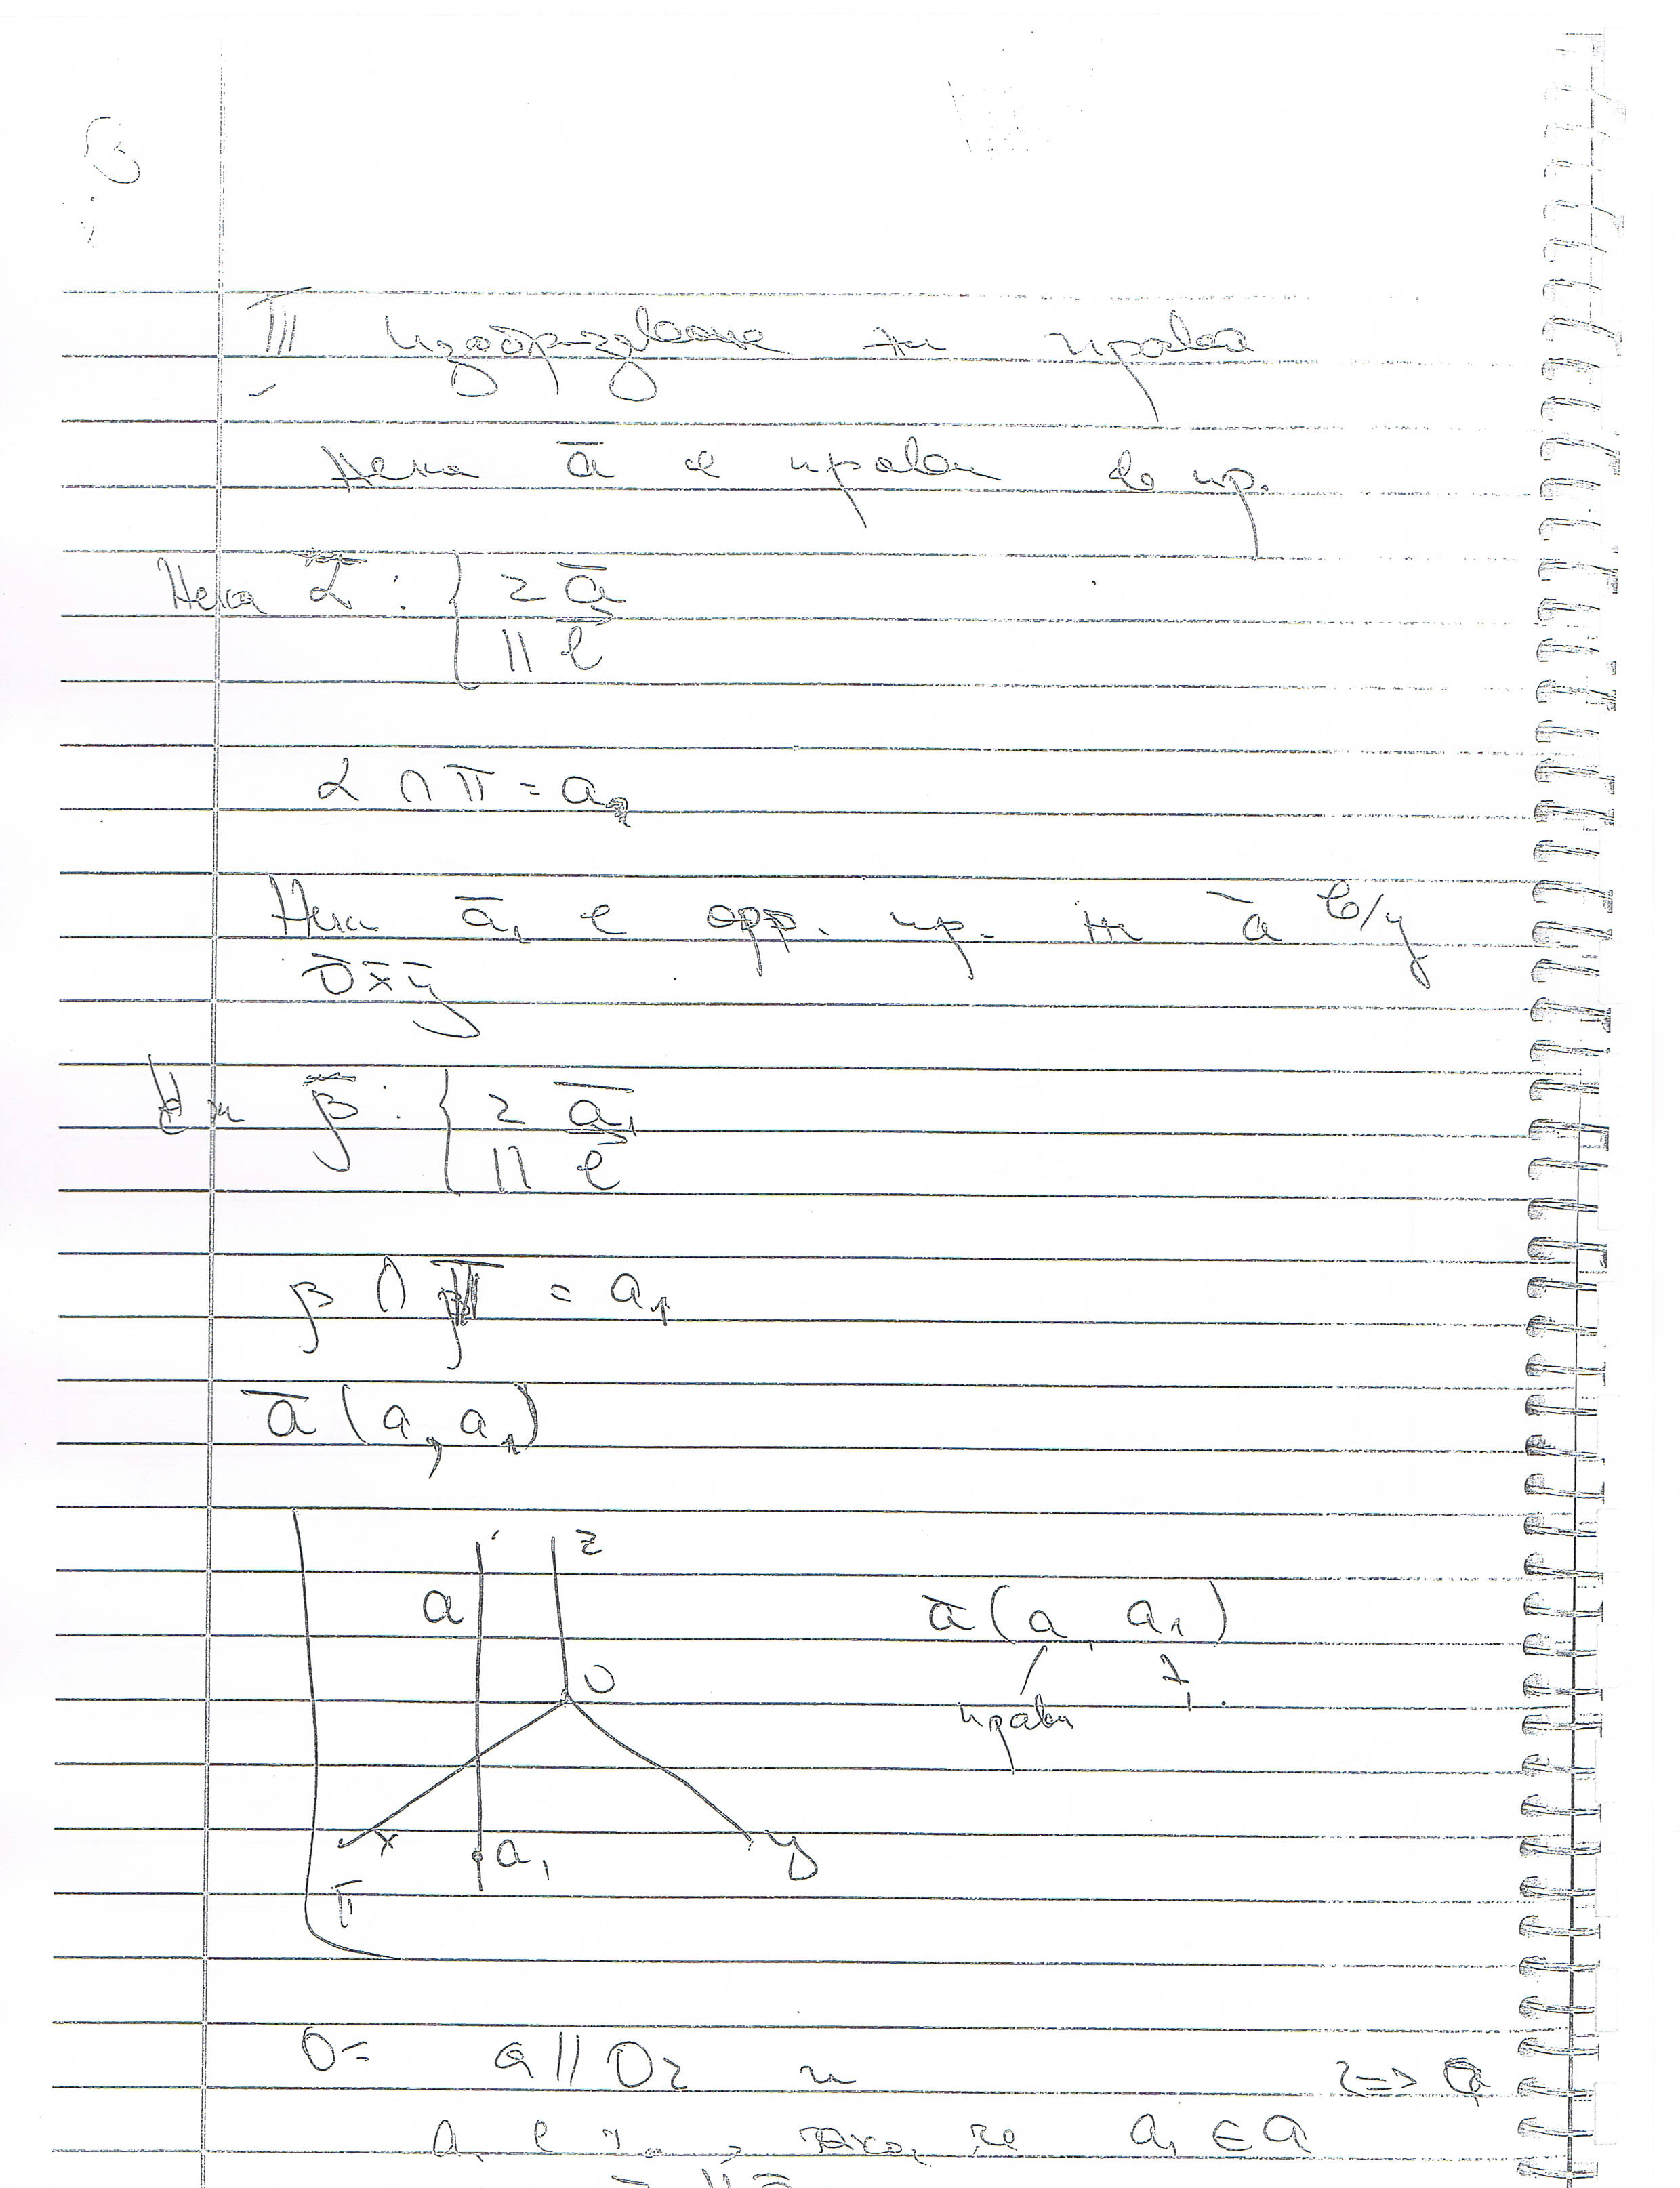 III Изобразяване на права
Нека ā е права в пр.
Нека ᾱ : { z ā
|| e⃗
α ∩ π = a
Нека ā₁ е орт. пр. на ā в/у
Ōx̄ȳ
Нека β̄ : { z ā₁
|| e⃗
β ∩ π = a₁
ā (a, a₁)
z
a
O
x
y
a₁
π
ā (a, a₁)
права т.
a || Oz и
a₁ е т., така че a₁ ∈ a